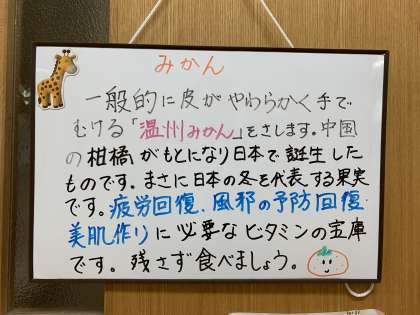 みかん
一般的に皮がやわらかく手で
むける「温州みかん」をさします。中国
の柑橘がもとになり日本で誕生した
ものです。まさに日本の冬を代表する果実
です。疲労回復、風邪の予防回復・
美肌作りに必要なビタミンの宝庫
です。残さず食べましょう。